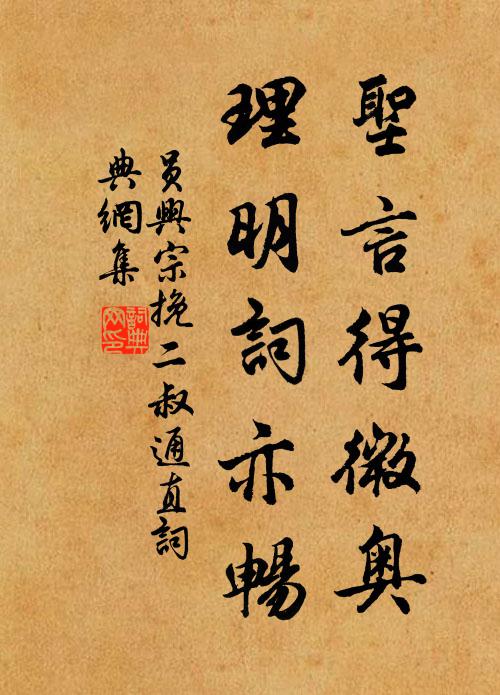 聖言得微奥
理明詞亦暢
員興宗挽二叔通直詞
典網集
詞典網印